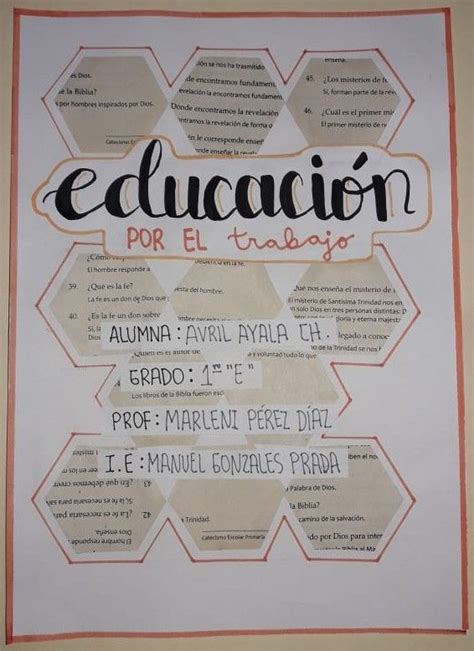 es Dios.
e la Biblia?
s por hombres inspirados por Dios.
Catecismo E
ión se nos ha trasmitido
de encontramos fundament
evelación la encontramos fundamen
Dónde encontramos la revelación
ntramos la revelación de forma o
én le corresponde enseñ
onde enseñar la revel
enseña.
45. ¿Los misterios de f
Sí, forman parte de la rev
46. ¿Cuál es el primer mi
El primer misterio de n
educación
POR EL trabajo
¿Cómo
El hombre responde a
39. ¿Qué es la fe?
La fe es un don de Dios que
40. ¿Es la fe un don sobre
Sí, la
en la fe.
esta del hombre.
Que nos enseña el misterio de
El misterio de Santísima Trinidad nos en
un solo Dios en tres personas distintas: D
gloria y eterna majest
legado a conoc
la Trinidad se nos
ALUMNA: AVRIL AYALA CH.
Quién es el autor de
a y voluntad todo lo que
GRADO: 1ro "E"
Los libros de la Biblia fueron esc
PROF: MARLENI PÉREZ DÍAZ
I.E: MANUEL GONZALES PRADA
¿En qué debemos creer
43.
Sí la fe es necesaria para sal
¿La fe es necesaria para
42.
Dios enseña.
El hombre responde
Trinidad.
Catecismo Escolar Primaria
iben el no
Palabra de Dios.
la Biblia?
camino de la salvación.
do por Dios para inter
la Biblia al M